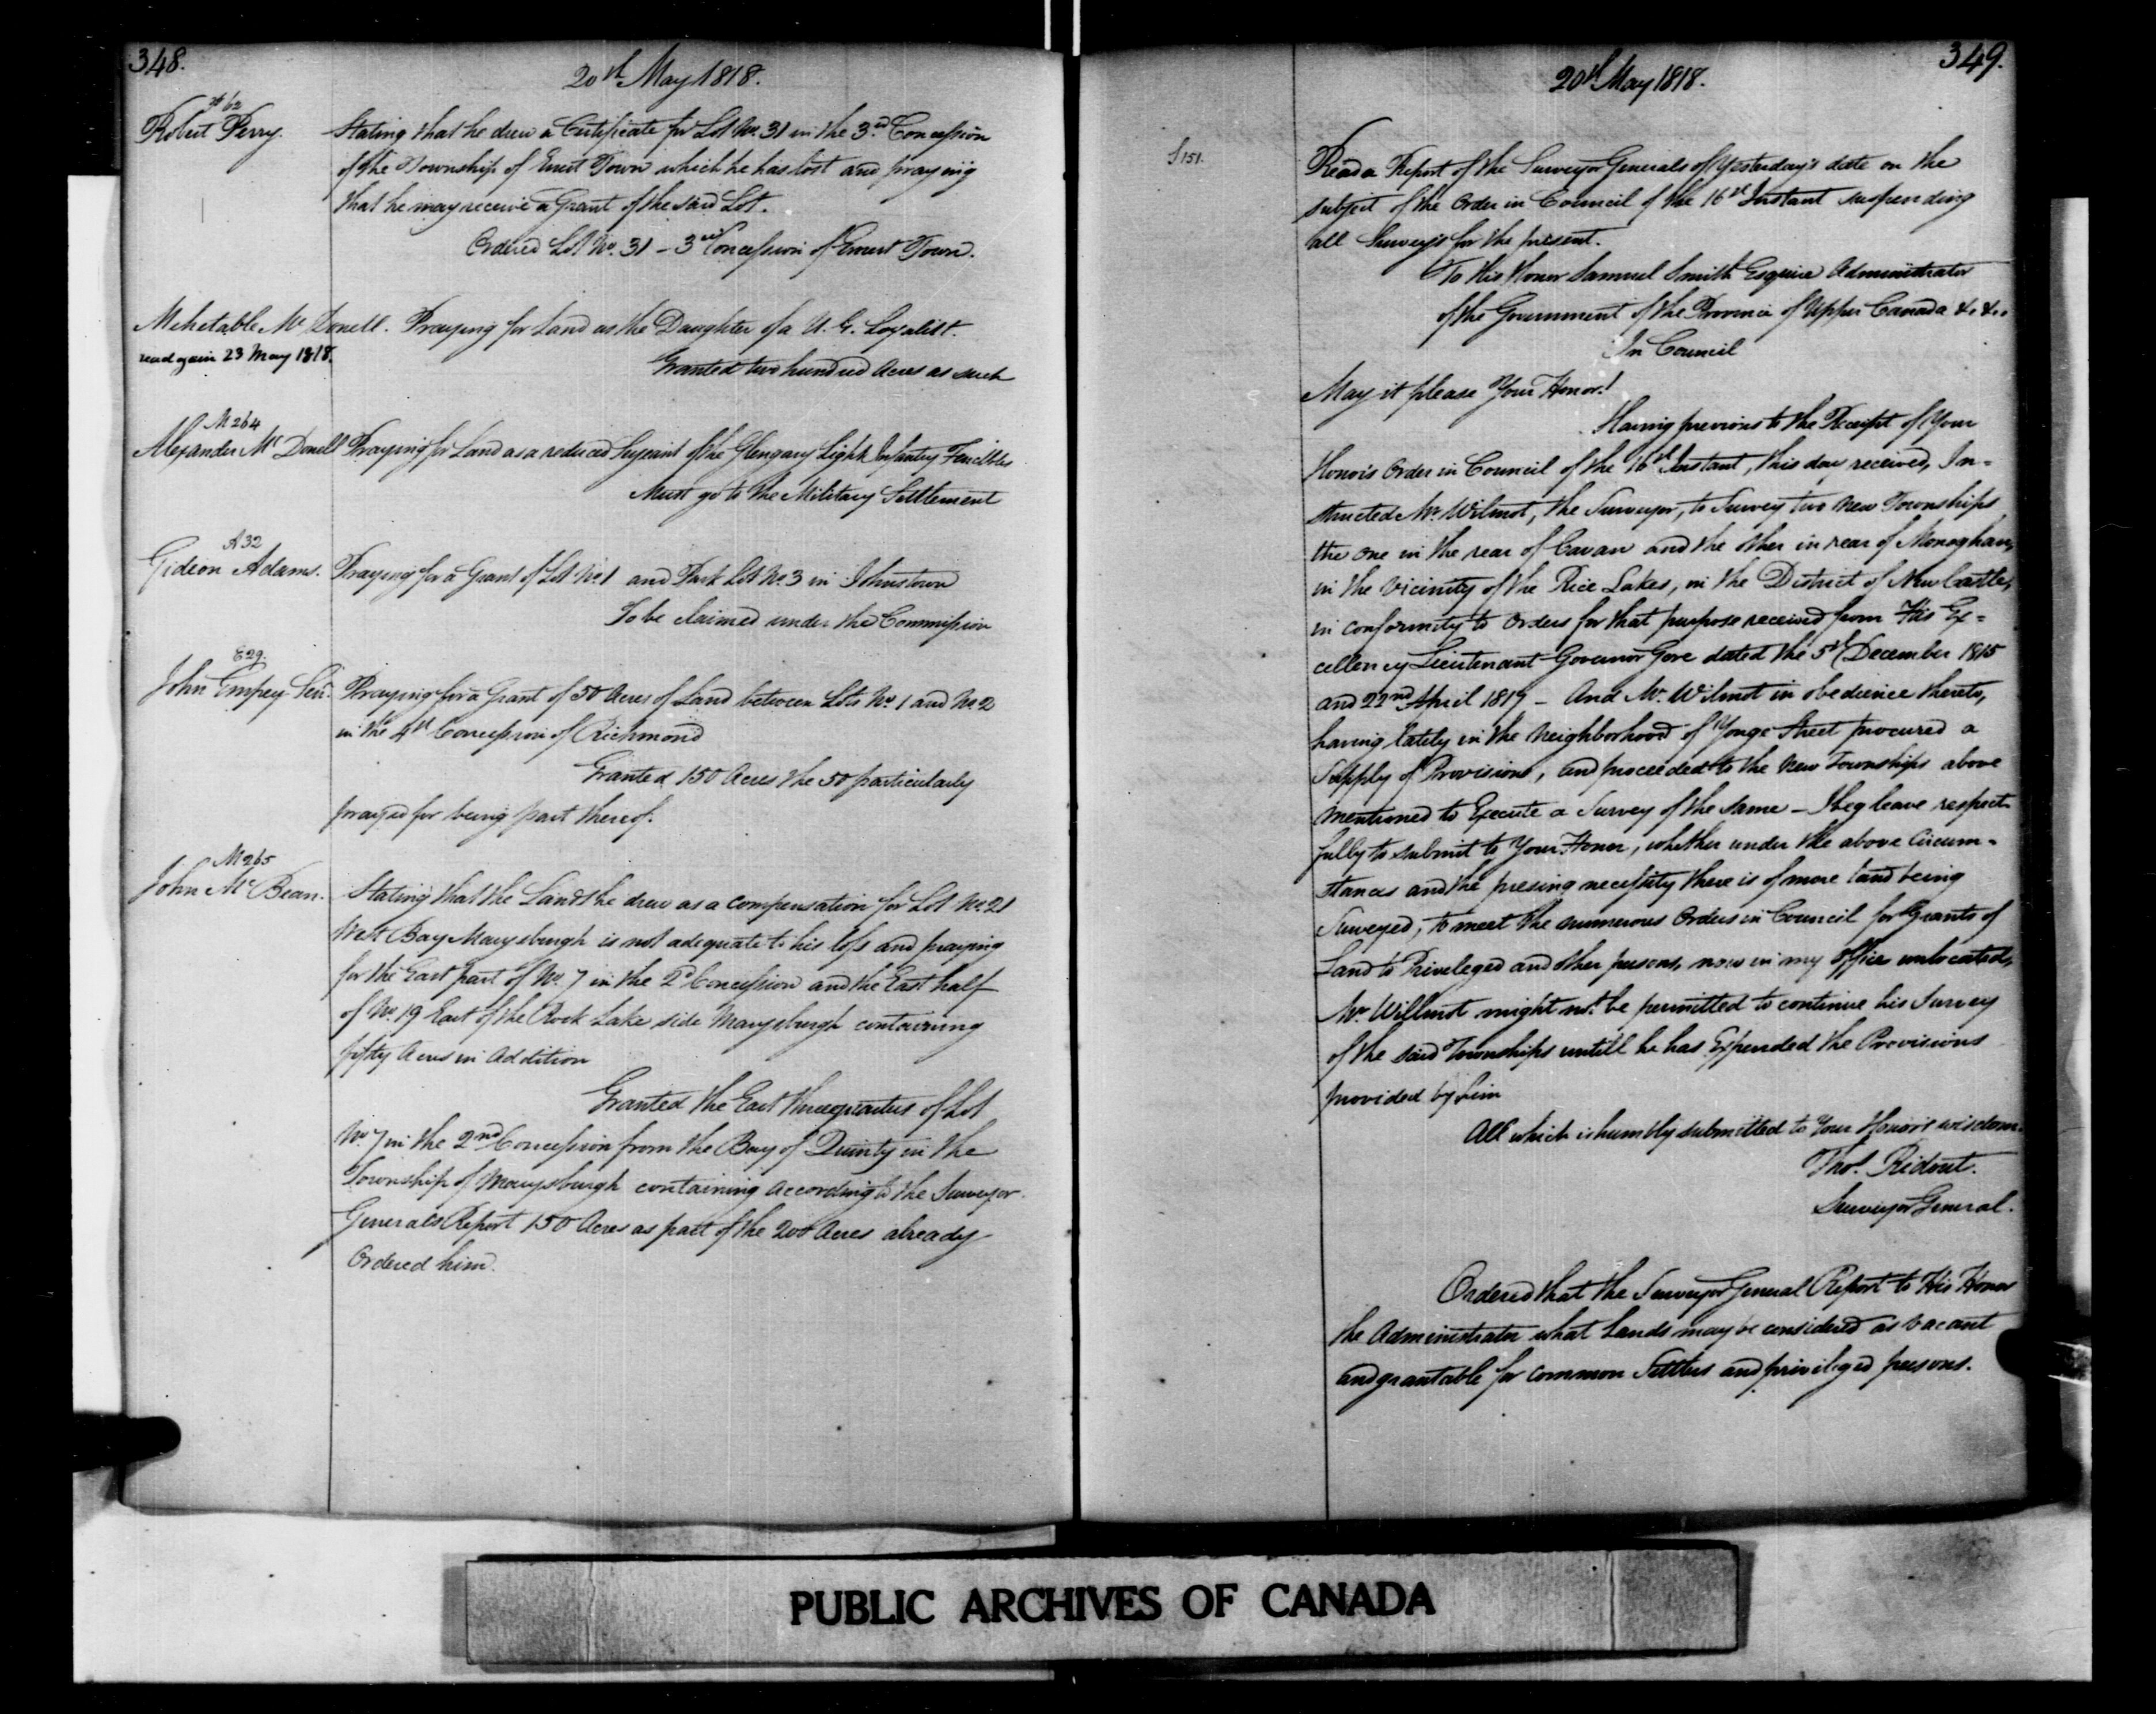 348.
20th May 1818.
P 62
Robert Perry. Stating that he drew a Certificate for Lot No. 31 in the 3rd Concession
of the Township of Ernest Town which he has lost and praying
that he may receive a Grant of the said Lot.
Ordered Lot No. 31 - 3rd Concession of Ernest Town.
Mehetable Mc Donell. Praying for Land as the Daughter of a U. E. Loyalist.
read again 23 May 1818.
Granted two hundred Acres as such
M 264
Alexander Mc Donell Praying for Land as a reduced Serjeant of the Glengary Light Infantry Fencibles
Must go to the Military Settlement
A 32
Gideon Adams. Praying for a Grant of Lot No. 1 and Park Lot No. 3 in Johnstown
To be claimed under the Commission
E 29.
John Empey Senr. Praying for a Grant of 50 Acres of Land between Lots No. 1 and No. 2
in the 4th Concession of Richmond
Granted 150 Acres the 50 particularly
prayed for being part thereof.
M 265
John Mc Bean. Stating that the Land he drew as a compensation for Lot No. 21
West Bay Marysburgh is not adequate to his loss and praying
for the East part of No. 7 in the 2d Concession and the East half
of No. 19 East of the Rock Lake side Marysburgh containing
fifty Acres in Addition
Granted the East threequarters of Lot
No. 7 in the 2nd Concession from the Bay of Quinty in the
Township of Marysburgh containing according to the Surveyor
Generals Report 150 Acres as part of the 200 Acres already
Ordered him.
349.
20th May 1818.
S 151.
Read a Report of the Surveyor Generals of Yesterday's date on the
subject of the Order in Council of the 16th Instant suspending
all Surveys for the present.
To His Honor Samuel Smith Esquire Administrator
of the Government of the Province of Upper Canada &. &..
In Council
May it please Your Honor!
Having previous to the Receipt of Your
Honor's Order in Council of the 16th Instant, this day received, In=
structed Mr. Wilmot, the Surveyor, to Survey two new Townships
the one in the rear of Cavan and the other in rear of Monaghan,
in the vicinity of the Rice Lakes, in the District of New Castle,
in conformity to Orders for that purpose received from His Ex=
cellency Lieutenant Governor Gore dated the 5th December 1815
and 22nd April 1817 - And Mr. Wilmot in obedience thereto,
having lately in the Neighborhood of Yonge Street procured a
Supply of Provisions, and proceeded to the New Townships above
mentioned to Execute a Survey of the same - I beg leave respect-
fully to submit to Your Honor, whether under the above circum=
stances and the presing necessity there is of more land being
Surveyed, to meet the numerous Orders in Council for Grants of
Land to Priveleged and other persons, now in my Office unlocated,
Mr. Willmot might not be permitted to continue his Survey
of the said Townships untill he has Expended the Provisions
provided by him
All which is humbly submitted to Your Honor's wisdom.
Thos. Ridout.
Surveyor General.
Ordered that the Surveyor General Report to His Honor
the Administrator what Lands may be considered as vacant
and grantable for common Settlers and privileged persons.
PUBLIC ARCHIVES OF CANADA